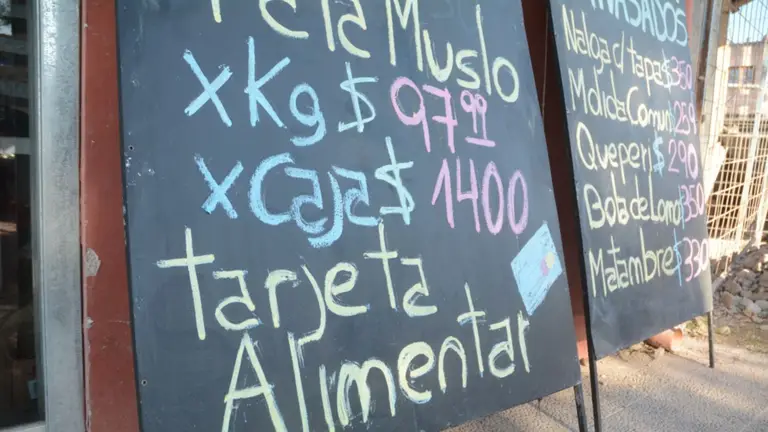 Pata Muslo
x Kg $ 97.99
x Caja $ 1400
tarjeta
Alimentar
Nalga c/ tapa $ 350
Molida Comun 259
Queperi $ 290
Bola de Lomo 350
Matambre $ 330